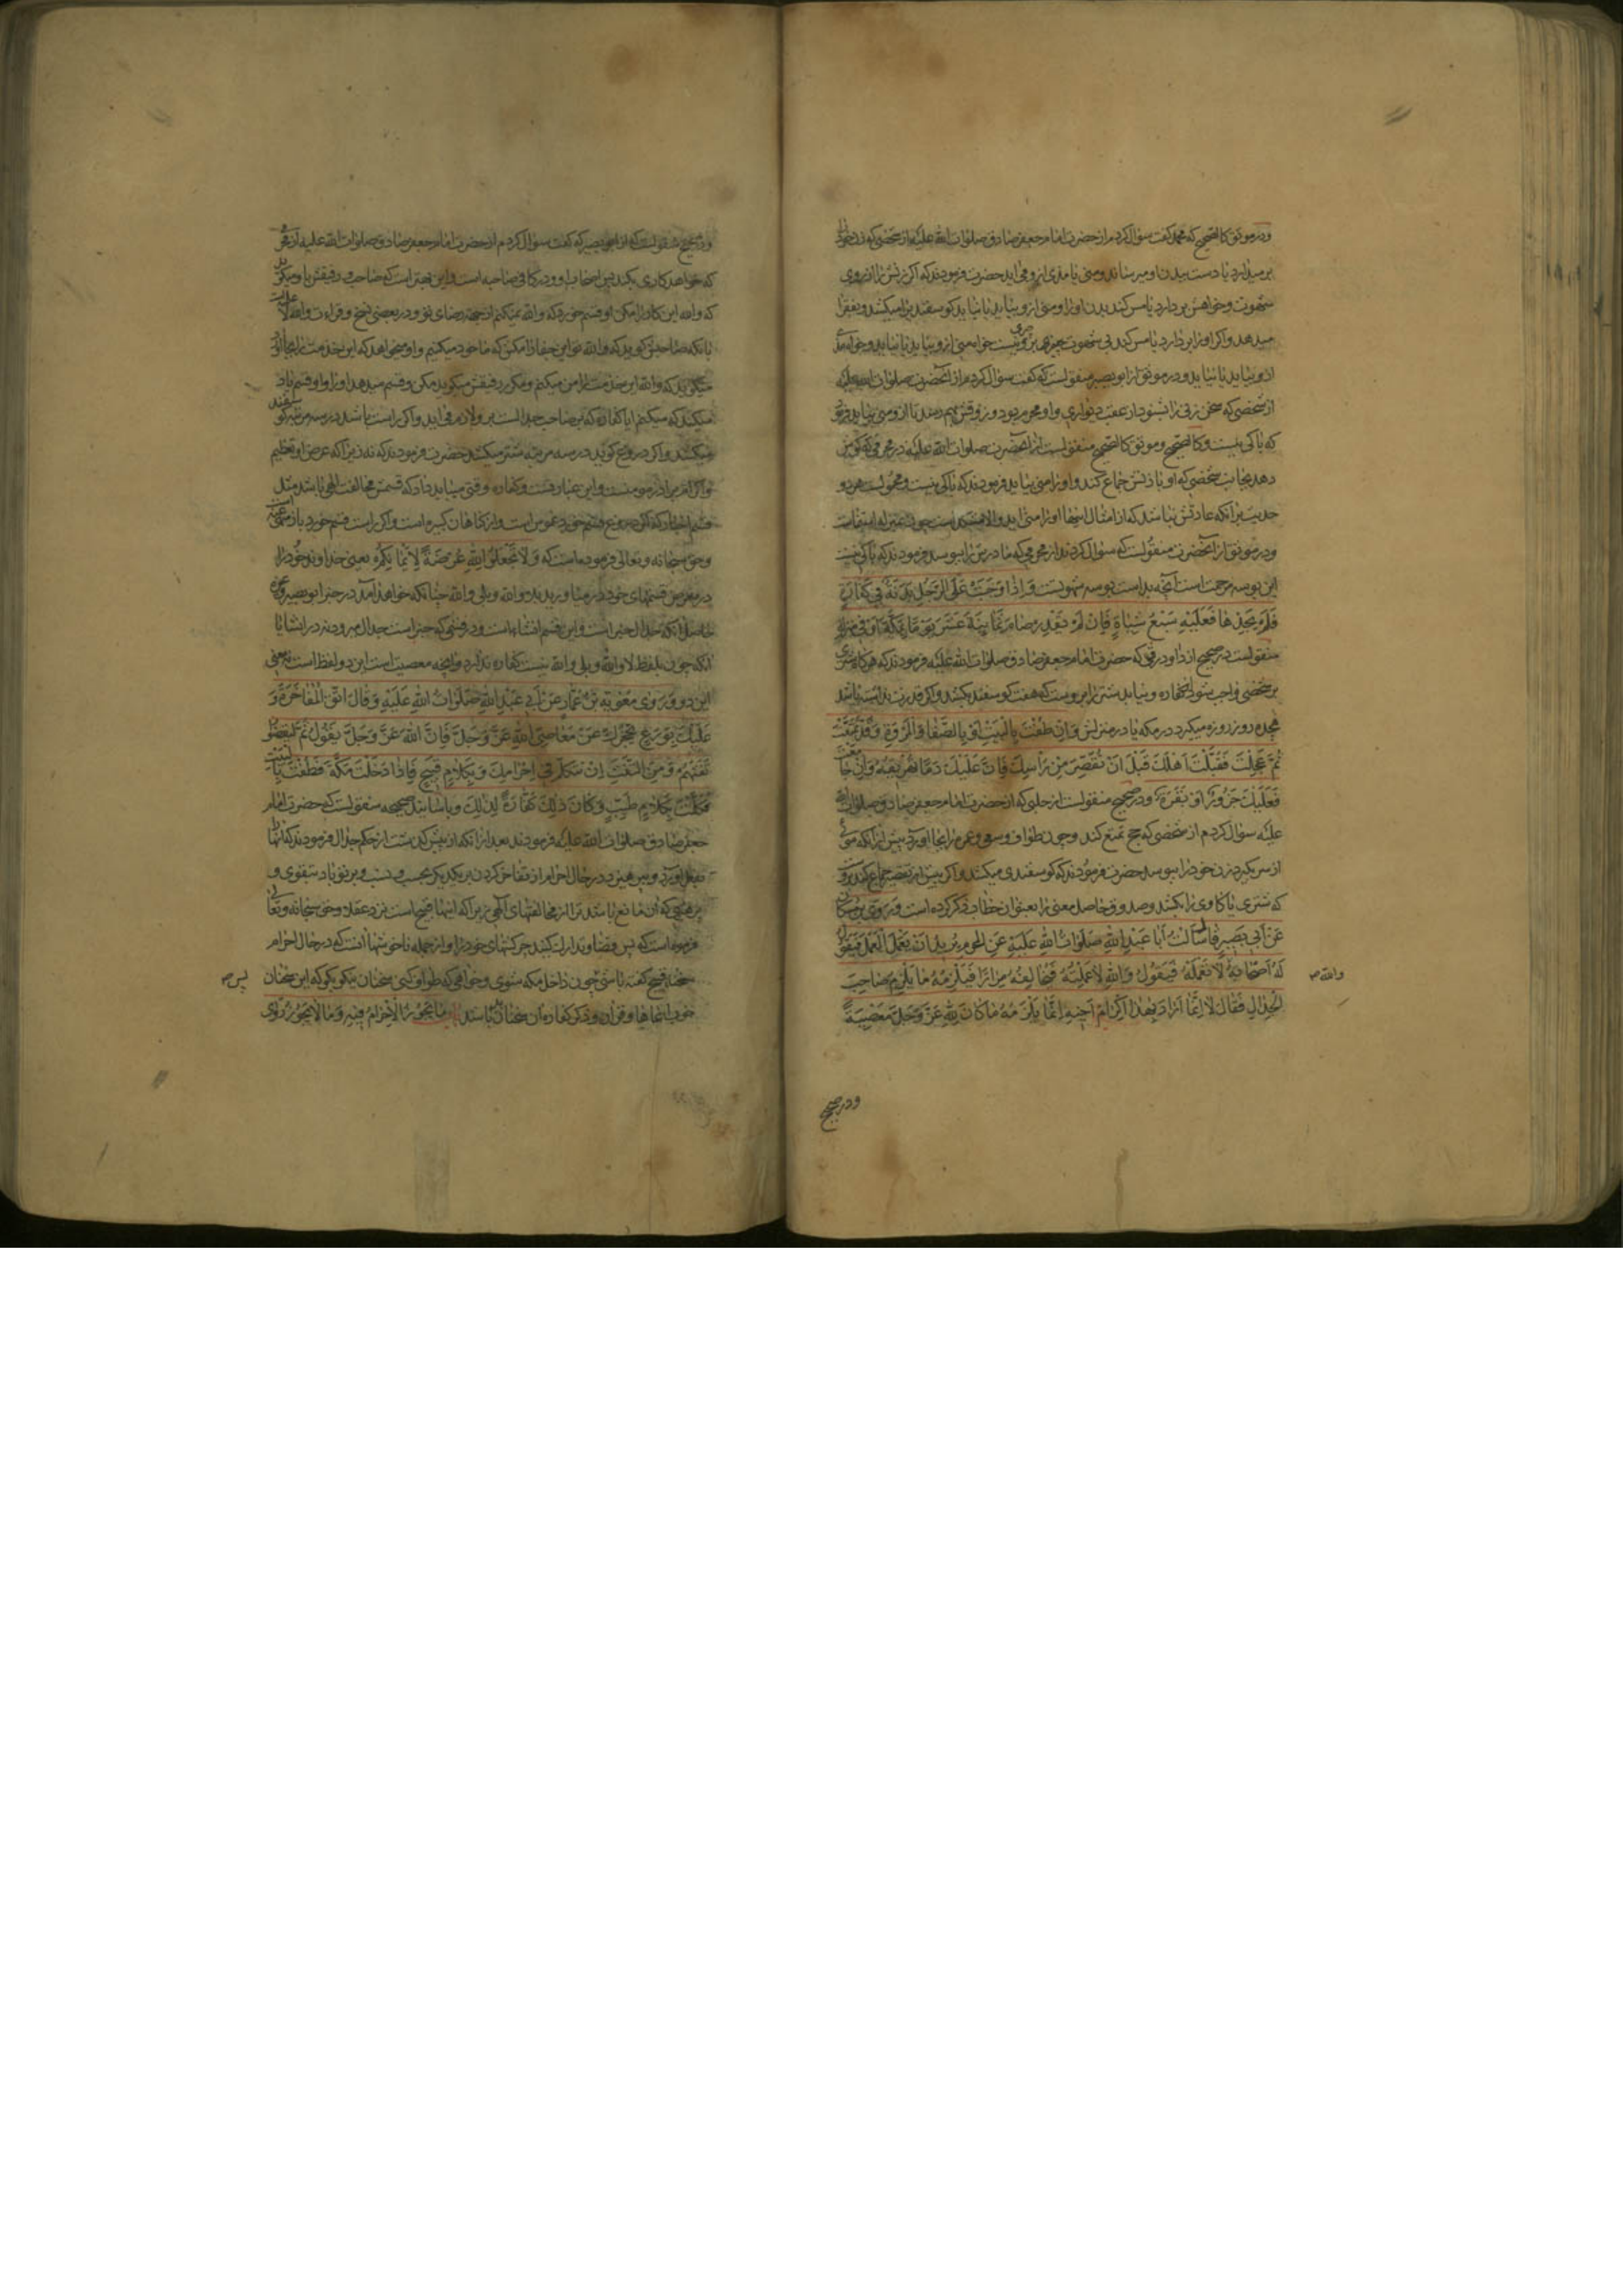 ودر موثق کالصحیح که محمد گفت سؤال کردم از حضرت امام جعفر صادق صلوات الله علیه از شخصی که زن خود را
بر میدارد یا دست ببدن او میرساند ومنی یا مذی از و می اید حضرت فرمودند که اگر زنش را از روی
شهوت وخواهش بر دارد یا مس کند بدن او را ومنی از و بیاید یا نیاید گوسفند یرا میکشد وبفقرا
میدهد واگر او را بر دارد یا مس کند بی شهوت چیزی برو نیست خواه منی از و بیاید یا نیاید وخواه مذی
از و بیاید یا نیاید ودر موثق از ابو بصیر منقولست که گفت سؤال کردم از آنحضرت صلوات الله علیه
از شخصی که سخن زنی را شنود از عقب دیواری واو محرم بود
که باکی نیست وکالصحیح وموثق کالصحیح منقولست از آنحضرت صلوات الله علیه در محرمی که گوش
دهد بجانب شخصی که او با زنش جماع کند واو را منی بیاید فرمودند که باکی نیست ومحمولست هر دو
حدیث بر انکه عادتش نباشد که از امثال اینها او را منی اید والا
ودر موثق از آنحضرت منقولست که سؤال کردند از محرمی که مادرش را ببوسد فرمودند که باکی نیست
این بوسه رحمت است آنچه بد است بوسه شهوتست وَاِذا وَجَبَتْ عَلَى الرَّجُلِ بَدَنَةٌ فی کَفّارَةٍ
فَلَمْ یَجِدْها فَعَلَیْهِ سَبْعُ شِیاةٍ فَاِنْ لَمْ یَقْدِرْ صامَ ثَمانِیَةَ عَشَرَ یَوْمًا بِمَکَّةَ اَوْ فی مَنْزِلِهِ
منقولست در صحیح از داود رقی که حضرت امام جعفر صادق صلوات الله علیه فرمودند که هرگاه شتری
بر شخصی واجب شود از کفاره ونیابد شتر را برو است که هفت گوسفند بکشد واگر قدرت نداشته باشد
هجده روز روزه میگیرد در مکه یا در منزلش وَاِنْ طُفْتَ بِالْبَیْتِ وَبِالصَّفا وَالْمَرْوَةِ وَقَدْ تَمَتَّعْتَ
ثُمَّ عَجِلْتَ فَقَبَّلْتَ اَهْلَكَ قَبْلَ اَنْ تُقَصِّرَ مِنْ رَأْسِكَ فَاِنَّ عَلَیْكَ دَمًا تُهْریقُهُ وَاِنْ جامَعْتَ
فَعَلَیْكَ جَزُورٌ اَوْ بَقَرَةٌ ودر صحیح منقولست از حلبی که از حضرت امام جعفر صادق صلوات الله
علیه سؤال کردم از شخصی که حج تمتع کند وچون طواف وسعی وعمره را بجا اورد پیش از آنکه موئی
از سر بگیرد زن خود را ببوسد حضرت فرمودند که گوسفندی میکشد واگر پیش از تقصیر جماع کند بروست
که شتری یا کاوی را بکشد وصدوق حاصل معنی را بعنوان خطاب ذکر کرده است وَرَوَی ابْنُ مُسْکانَ
عَنْ اَبی بَصیرٍ قالَ سَأَلْتُ أَبا عَبْدِ اللهِ صَلَواتُ اللهِ عَلَیْهِ عَنِ الْمُحْرِمِ یُریدُ اَنْ یَعْمَلَ الْعَمَلَ فَیَقُولُ
لَهُ اَصْحابُهُ لا تَعْمَلْهُ فَیَقُولُ وَاللهِ لَاَعْمَلَنَّهُ فَیُحالِفُهُ مِرارًا فَیَلْزَمُهُ ما یَلْزَمُ صاحِبَ
والله ص
الْجِدالِ فَقالَ لا اِنَّما اَرادَ بِهٰذا اِکْرامَ اَخیهِ اِنَّما یَلْزَمُهُ ما کانَ لِلّهِ عَزَّ وَجَلَّ مَعْصِیَةً
ودر صحیح
ودر صحیح منقولست که از ابو بصیر که گفت سؤال کردم از حضرت امام جعفر صادق صلوات الله علیه از محرمی
که خواهد کاری بکند پس اصحاب او ودر کافی صاحبه است واین بهتر است که صاحب ورفیقش باو میگوید
که والله این کار را مکن او قسم خورد که والله میکنم از جهة رضای تو ودر بعضی نسخ
یا انکه صاحبش گوید که والله تو این جفا را مکن که ما خود میکنیم واو میخواهد که این خدمت را بجا آورد
میگوید که والله این خدمت را من میکنم ومکرر رفیقش میگوید مکن وقسم میدهد او را واو قسم یاد
میکند که میکنم ایا کفاره که بر صاحب جدالست برو لازم می اید واگر راست باشد در سه مرتبه گوسفند
میکشد واگر دروغ گوید در سه مرتبه شتر میکشد حضرت فرمودند که نه زیرا که غرض او تعظیم
واکرام برادر مومنست واین عبارتست وکفاره وقتی میباید داد که قسمش مخالفت الهی باشد مثل
قسم دروغ قسم خورد غموس است واز کناهان کبیره است واگر راست قسم خورد باز منهی عنه
وحق سبحانه وتعالی فرموده است که وَلا تَجْعَلُوا اللهَ عُرْضَةً لِاَیْمانِکُمْ یعنی خداوند خود را
در معرض قسمهای خود در میاورید بلا والله وبلی والله چنانکه خواهد آمد در خبر ابو بصیر وغیره
حاصل آنکه جدال خبر است واین قسم انشاء است ودر قسمی که خبر است جدال میرود نه در انشا یا
آنکه چون بلفظ لا والله وبلی والله نیست کفاره ندارد وآنچه معصیت است این دو لفظ است یا معنی
این دو وَرَوی مُعاوِیَةُ بْنُ عَمّارٍ عَنْ اَبی عَبْدِ اللهِ صَلَواتُ اللهِ عَلَیْهِ وَقالَ اتَّقِ الْمُفاخَرَةَ وَ
عَلَیْكَ بِوَرَعٍ یَحْجُزُكَ عَنْ مَعاصِی اللهِ عَزَّ وَجَلَّ فَاِنَّ اللهَ عَزَّ وَجَلَّ یَقُولُ ثُمَّ لْیَقْضُوا
تَفَثَهُمْ وَمِنَ التَّفَثِ اَنْ تَتَکَلَّمَ فی اِحْرامِكَ بِکَلامٍ قَبیحٍ فَاِذا دَخَلْتَ مَکَّةَ فَطُفْتَ بِالْبَیْتِ
تَکَلَّمْتَ بِکَلامٍ طَیِّبٍ وَکانَ ذٰلِكَ کَفّارَةً لِذٰلِكَ وباسانید صحیحه منقولست که حضرت امام
جعفر صادق صلوات الله علیه فرمودند بعد از آنکه از پیش گذشت از حکم جدال فرمودند که اینها را
بفعل آورد وبپرهیزید در حال احرام از تفاخر کردن بر یکدیکر بحسب ونسب وبر تو باد بتقوی و
پرهیزی که آن مانع باشد ترا از مخالفتهای الهی زیرا که اینها قبیح است نزد عقلا وحق سبحانه وتعالی
فرموده است که پس قضا وتدارك کنند چرکنهای خود را واز جمله ناخوشیها آنست که در حال احرام
سخنان قبیح کفته باشی چون داخل مکه شوی وخواهی که طواف کنی سخنان نیکو بگو که این سخنان
پس ص
خوب وقرآن وذکر کفاره آن سخنان بد باشد بابُ ما یَجُوزُ الْاِحْرامُ فیهِ وَما لا یَجُوزُ رَوی